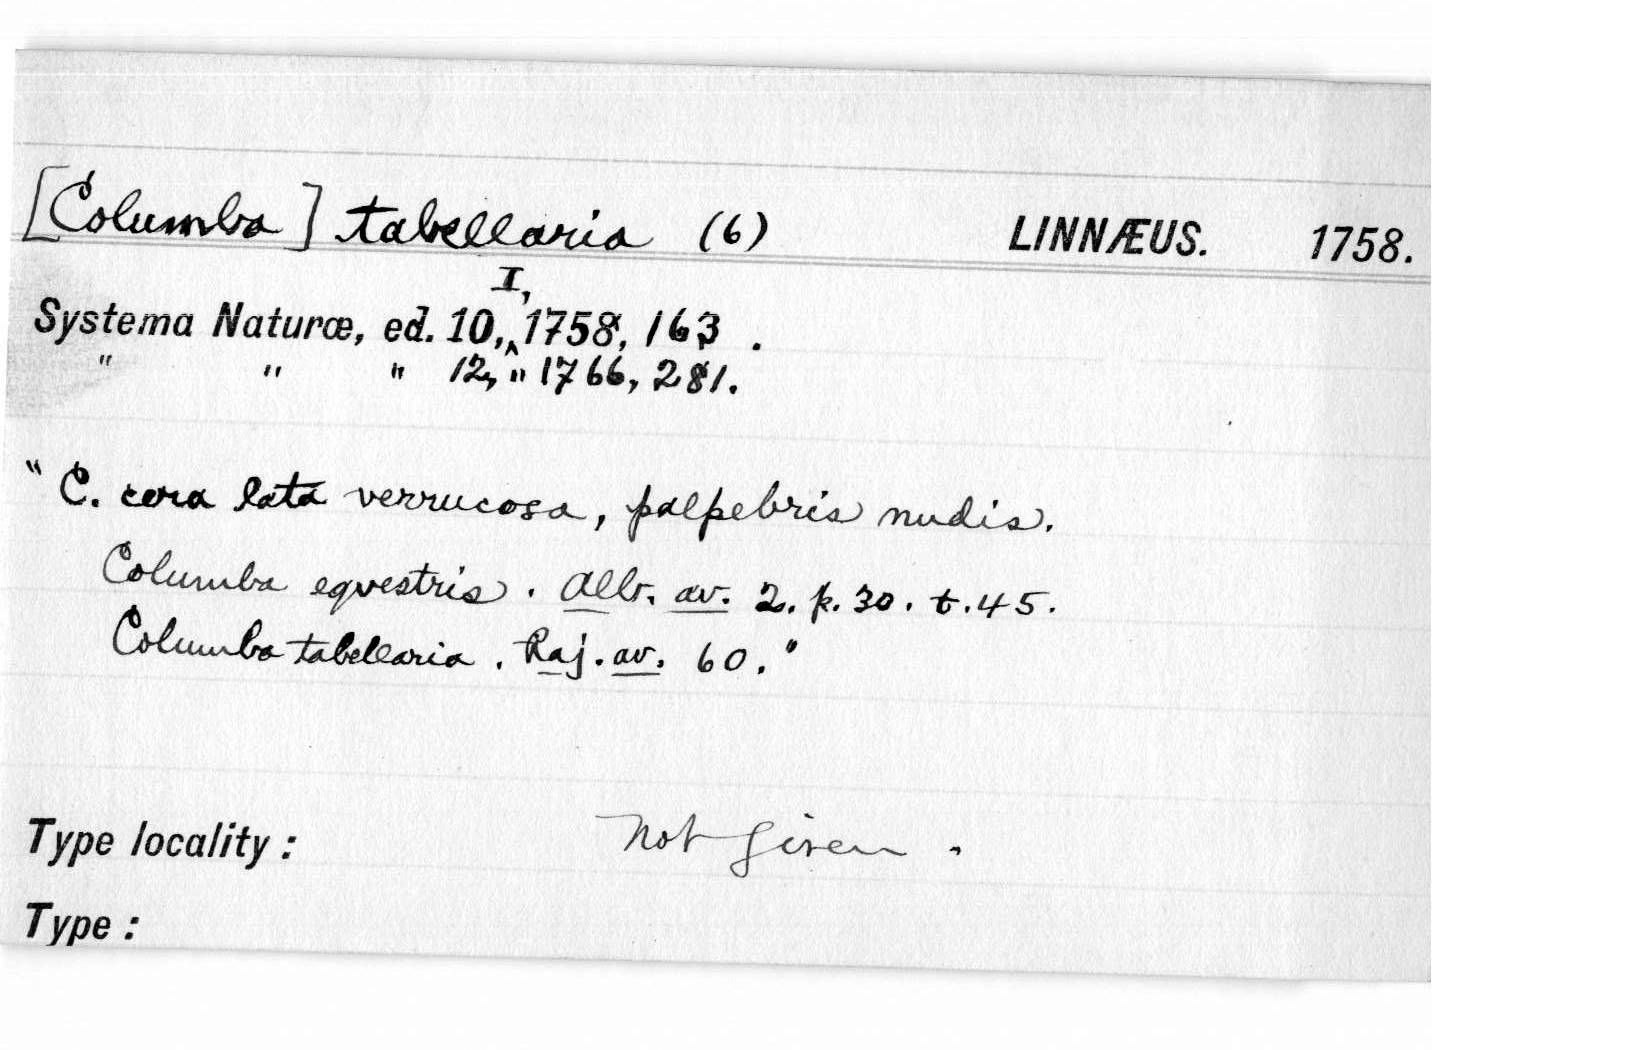 [Columba] tabellaria (6) LINNÆUS. 1758.
I,
Systema Naturæ, ed. 10,‸1758, 163 .
" " " 12, " 1766, 281.
"C. cera lata verrucosa, palpebris nudis.
Columba eqvestris. Alb. av. 2. p. 30. t. 45.
Columba tabellaria. Raj. av. 60."
Type locality : Not given .
Type :